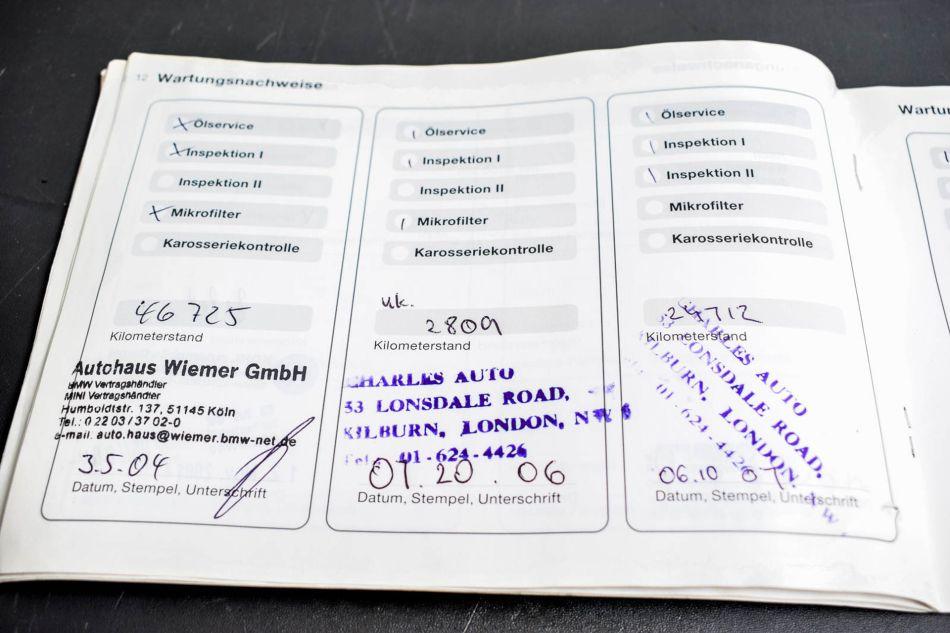 12 Wartungsnachweise
Ölservice
Inspektion I
Inspektion II
Mikrofilter
Karosseriekontrolle
46 725
Kilometerstand
Autohaus Wiemer GmbH
BMW Vertragshändler
MINI Vertragshändler
Humboldtstr. 137, 51145 Köln
Tel.: 0 22 03 / 37 02-0
e-mail: auto.haus@wiemer.bmw-net.de
3.5.04
Datum, Stempel, Unterschrift
Ölservice
Inspektion I
Inspektion II
Mikrofilter
Karosseriekontrolle
uk.
2809
Kilometerstand
CHARLES AUTO
53 LONSDALE ROAD,
KILBURN, LONDON, NW
Tel. 01-624-4426
01.20.06
Datum, Stempel, Unterschrift
Ölservice
Inspektion I
Inspektion II
Mikrofilter
Karosseriekontrolle
24712
Kilometerstand
CHARLES AUTO
53 LONSDALE ROAD,
KILBURN, LONDON,
01-624-4426
06.10 07
Datum, Stempel, Unterschrift
Wartu